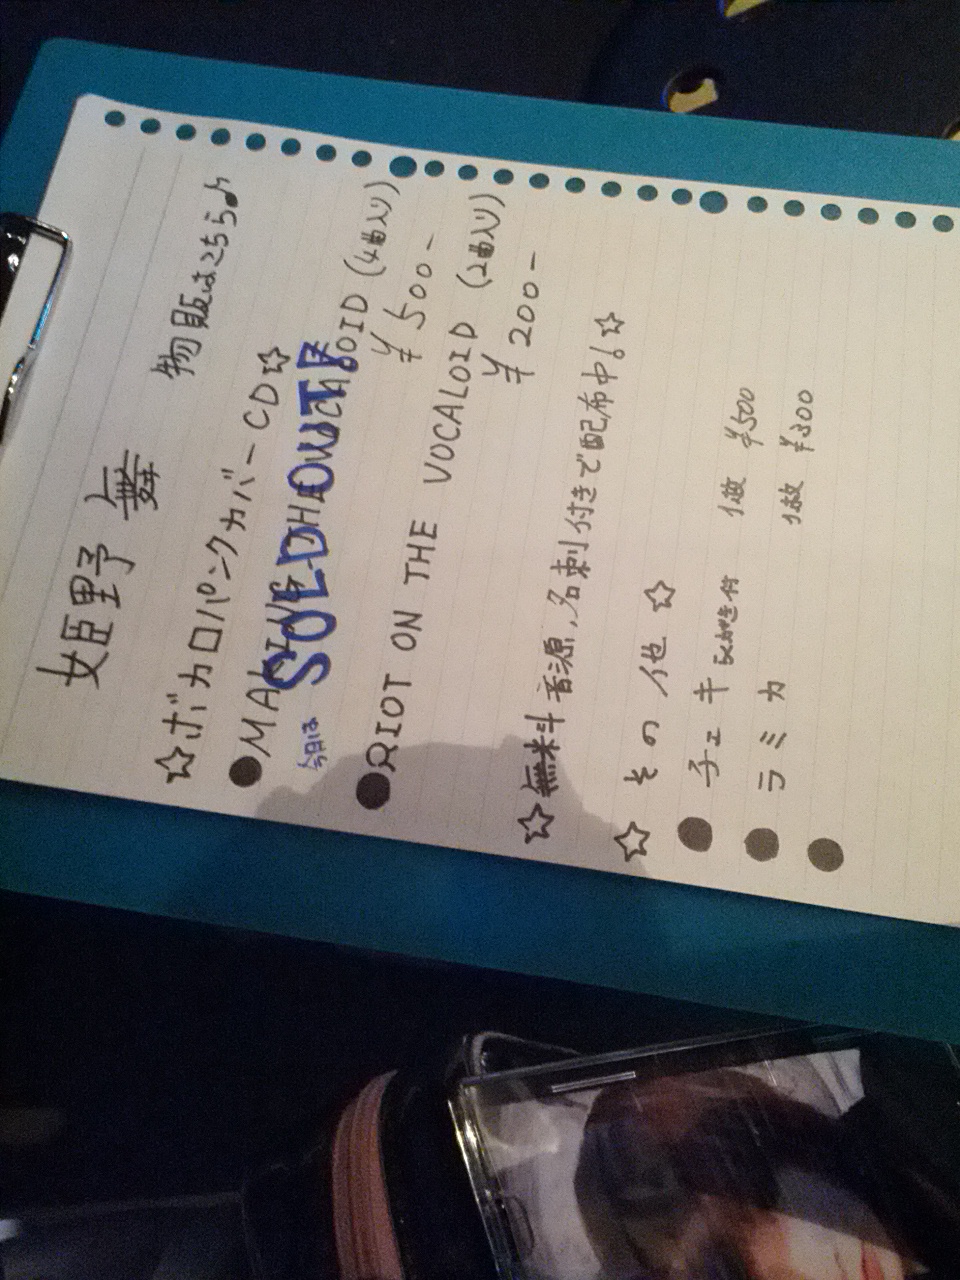 姫野 舞
物販はこちら♪
☆ボカロパンクカバーCD☆
●MAKING THE VOCALOID (4曲入り)
今日は SOLD OUT
¥500-
●RIOT ON THE VOCALOID (2曲入り)
¥200-
☆無料音源,名刺付きで配布中!☆
☆その他☆
●チェキ 1枚 ¥500
●ラミカ 1枚 ¥300
●